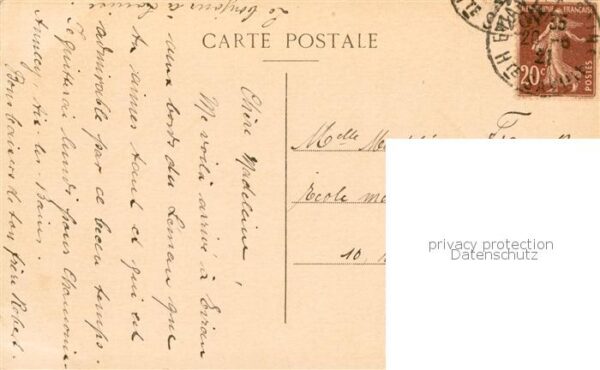 Le bonjour à Louise
CARTE POSTALE
Chère Madeleine,
Me voilà arrivé à Evian
aux bords du Léman que
tu aimes tant et qui est
admirable par ce beau temps.
Je quitterai lundi pour Chamonix
Annecy, Aix-les-Bains.
Bons baisers de ton frère Robert.
Melle
Ecole
10,
20c
POSTES
FRANÇAISE
privacy protection
Datenschutz